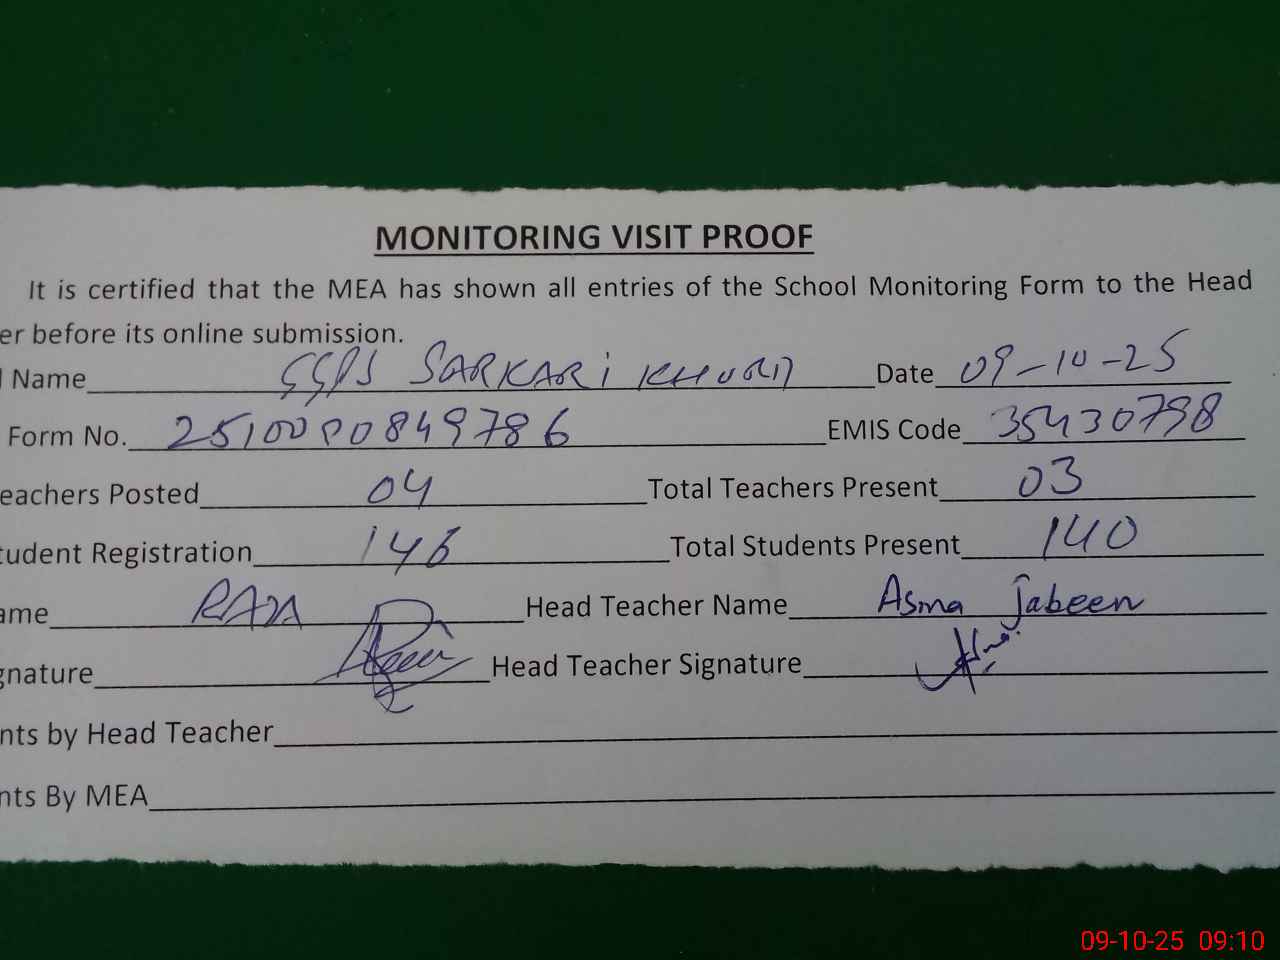 MONITORING VISIT PROOF
It is certified that the MEA has shown all entries of the School Monitoring Form to the Head
er before its online submission.
l Name SARKARI KHURD Date 09-10-25
Form No. EMIS Code 35430798
eachers Posted 04 Total Teachers Present 03
tudent Registration 146 Total Students Present 140
ame Head Teacher Name Asma Jabeen
gnature Head Teacher Signature
nts by Head Teacher
nts By MEA
09-10-25 09:10